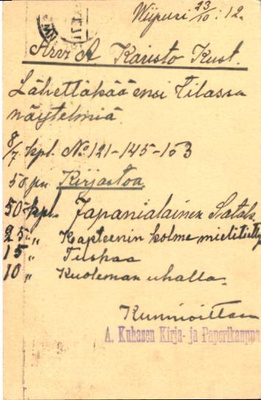 Wiipuri 23/10 : 12.
Arvi A Karisto Kust.
Lähettäkää ensi tilassa
näytelmiä
8/7 kpl. No: 121-145-153
50 pn Kirjastoa
50 kpl. Japanialainen Satak
25 " Kapteenin kolme
15 "
10 " Kuoleman uhalla.
Kunnioittaen
A. Kuhasen Kirja- ja Paperikauppa